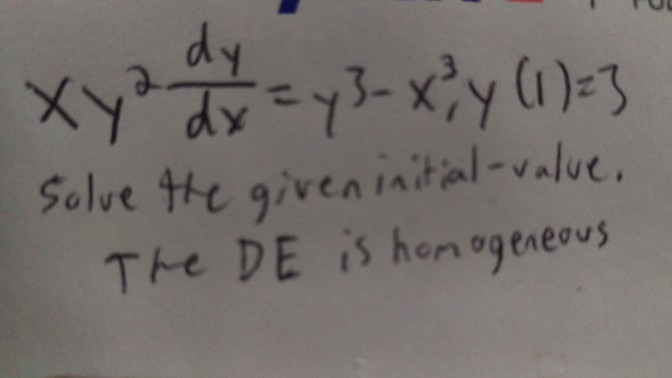 xy² dy/dx = y³ - x³, y(1)=3
Solve the given initial-value.
The DE is homogeneous